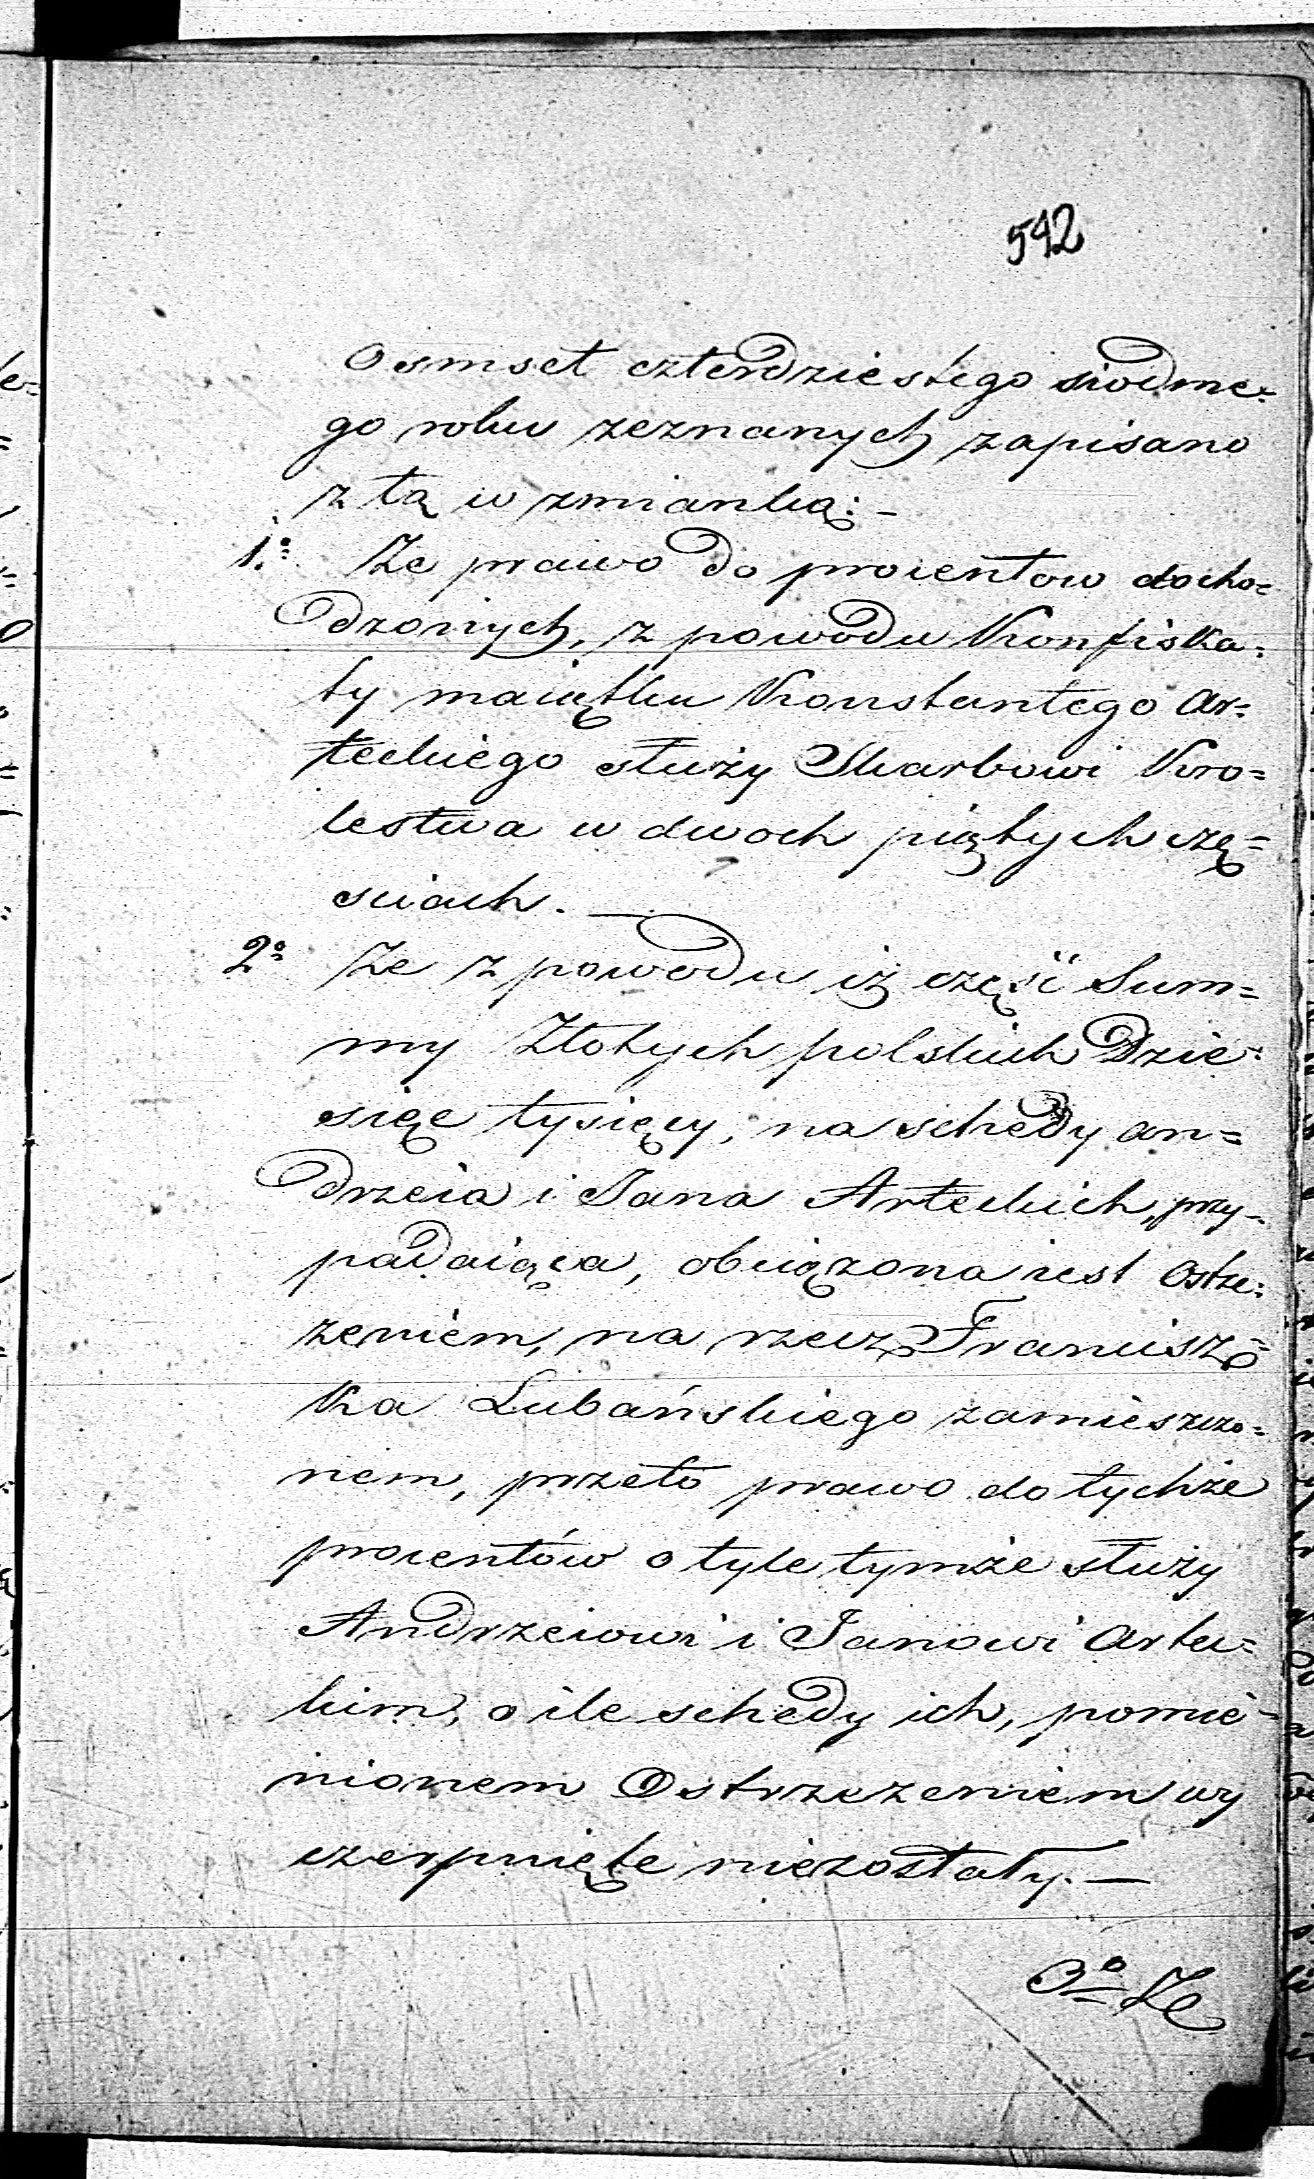 542
Osmset czterdziestego siodme=
go roku zeznanych zapisano
z tą wzmianką: -
1o Ze prawo do procentow docho=
dzonych, z powodu Konfiska=
ty maiątku Konstantego Ar=
teckiego służy Skarbowi Kro=
lestwa w dwoch piątych czę=
sciach. —
2o Ze z powodu iż część Sum=
my Złotych polskich Dzie=
sięc tysięcy, na schedy An=
drzeia i Jana Arteckich, przy-
padaiąca, obciązona iest Ostrze=
zeniem, na rzecz Francisz=
ka Lubańskiego zamieszczo=
nem, przeto prawo do tychże
procentów o tyle tymże służy
Andrzeiowi i Janowi Artec=
kim, o ile schedy ich, pomie-
nionem Ostrzezeniem wy
czerpnięte niezostały. —
3o Ze